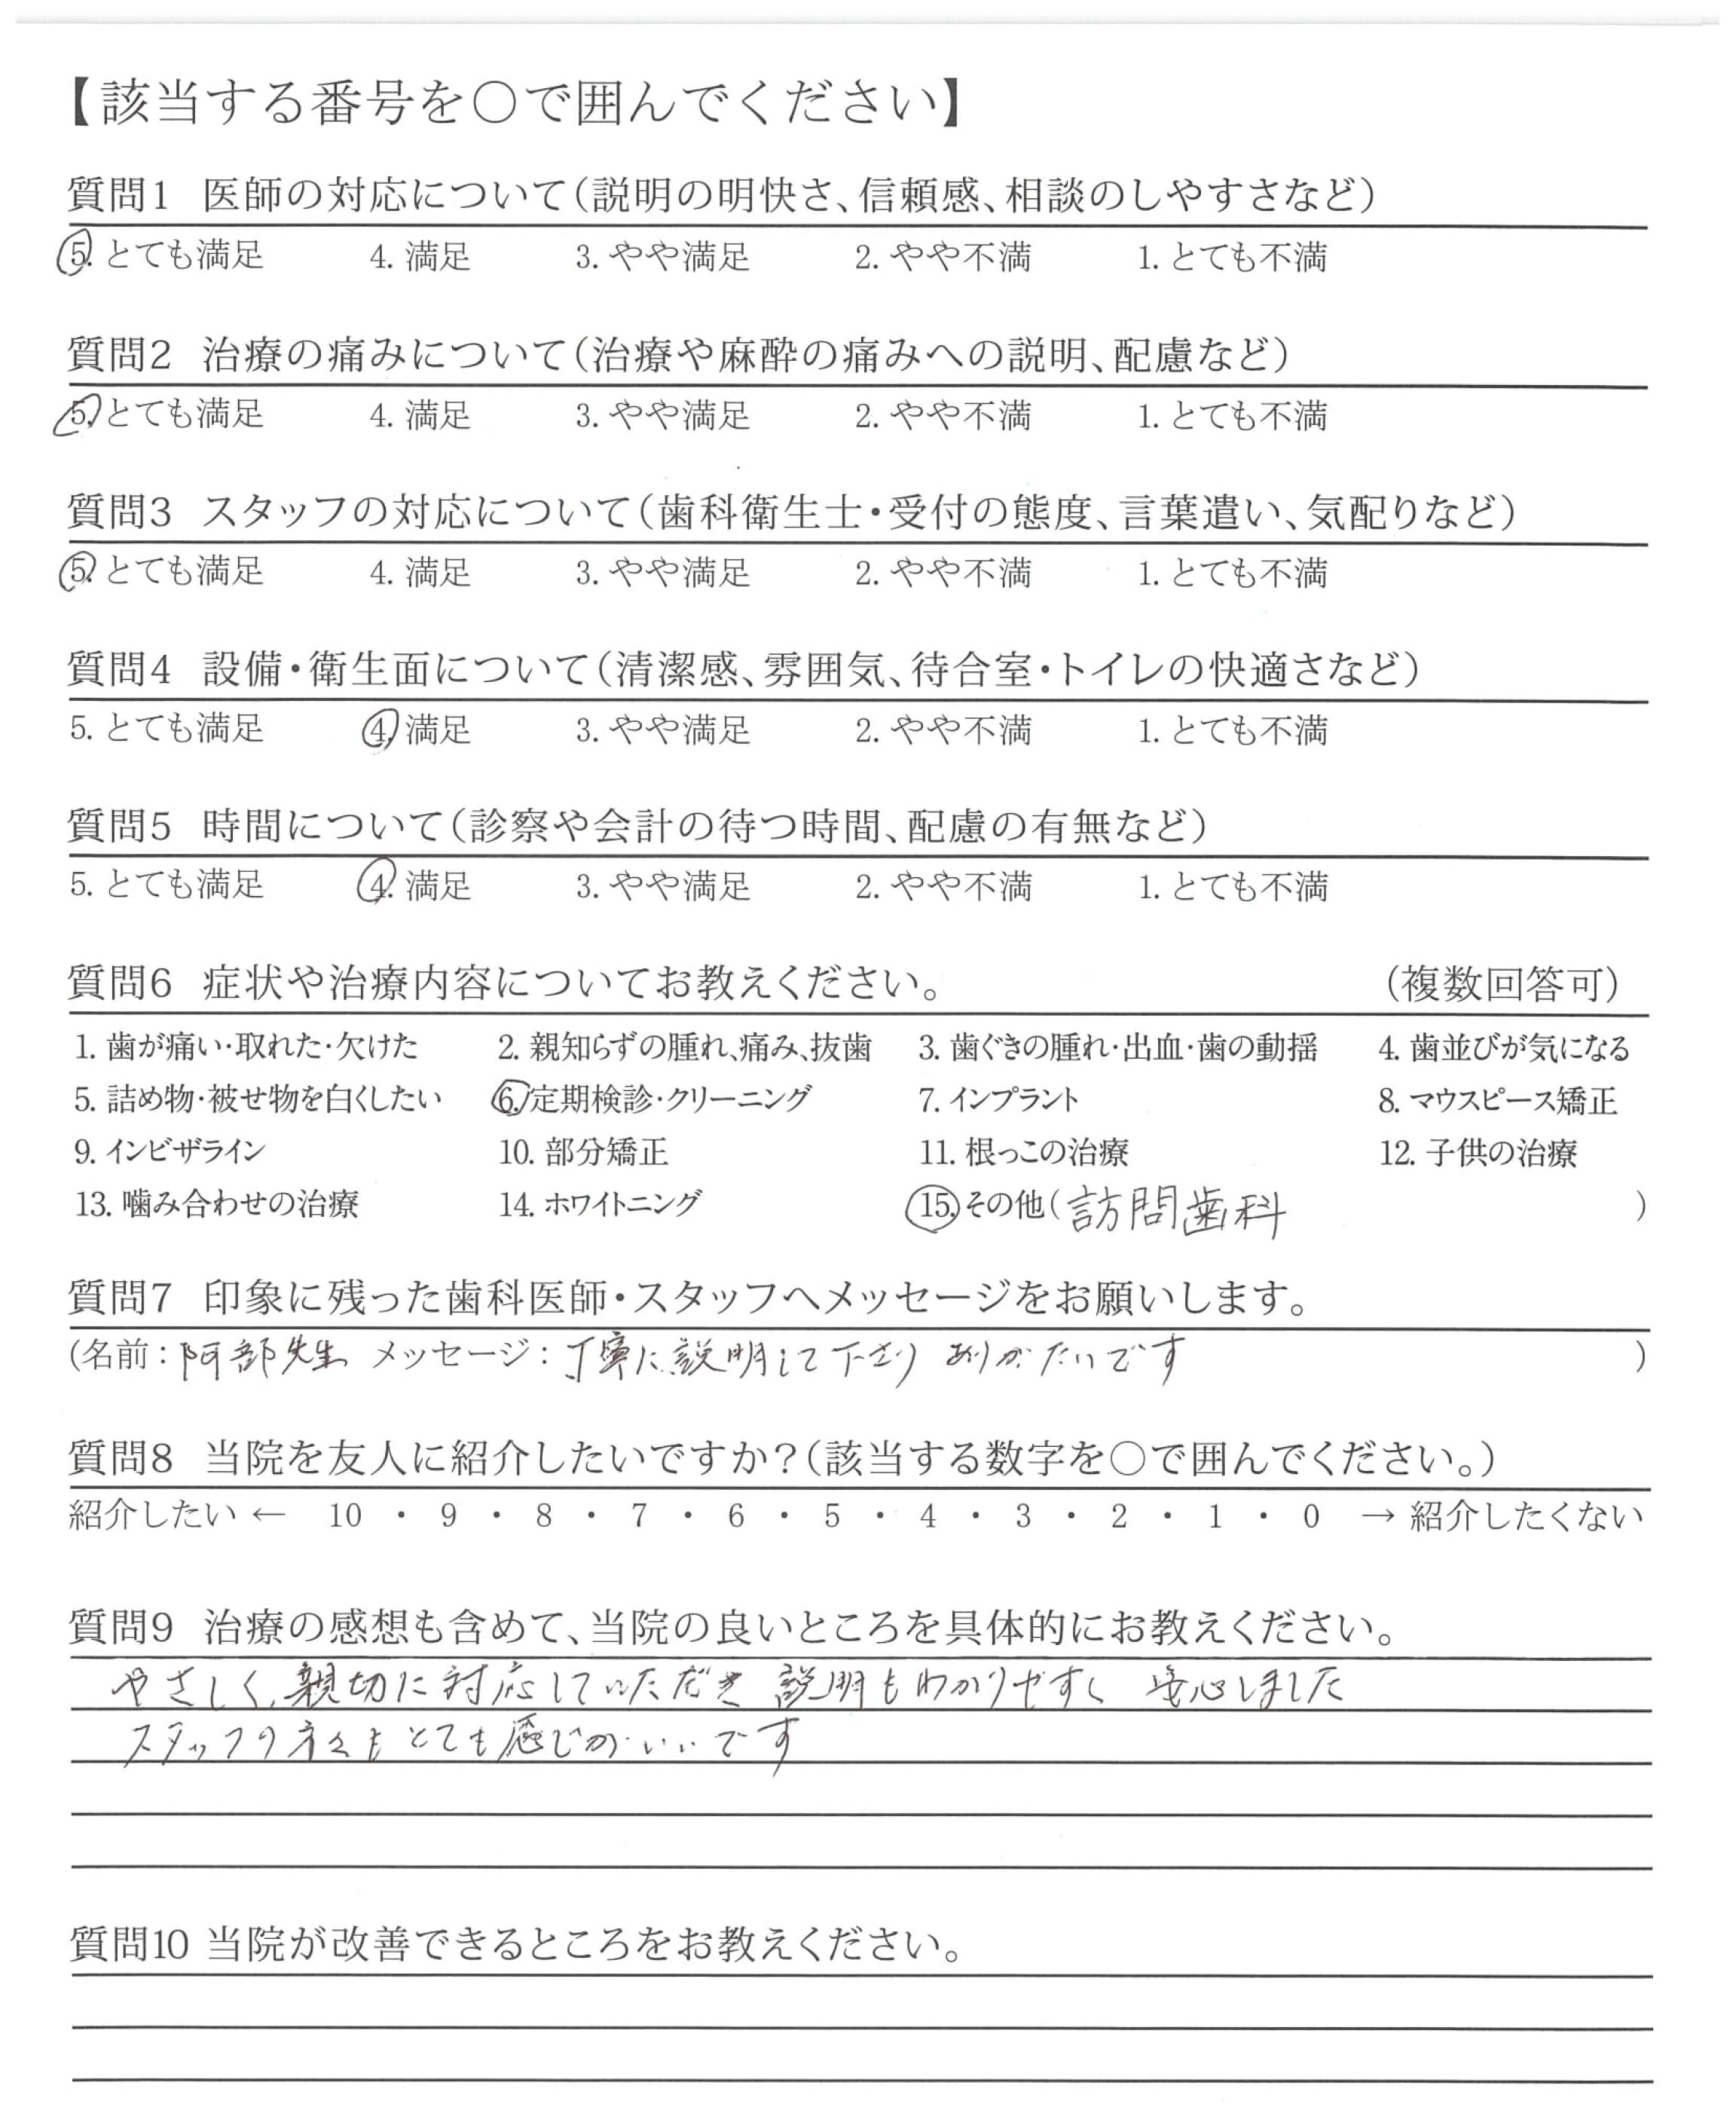 【該当する番号を○で囲んでください】
質問1 医師の対応について(説明の明快さ、信頼感、相談のしやすさなど)
5. とても満足 4. 満足 3. やや満足 2. やや不満 1. とても不満
質問2 治療の痛みについて(治療や麻酔の痛みへの説明、配慮など)
5. とても満足 4. 満足 3. やや満足 2. やや不満 1. とても不満
質問3 スタッフの対応について(歯科衛生士・受付の態度、言葉遣い、気配りなど)
5. とても満足 4. 満足 3. やや満足 2. やや不満 1. とても不満
質問4 設備・衛生面について(清潔感、雰囲気、待合室・トイレの快適さなど)
5. とても満足 4. 満足 3. やや満足 2. やや不満 1. とても不満
質問5 時間について(診察や会計の待つ時間、配慮の有無など)
5. とても満足 4. 満足 3. やや満足 2. やや不満 1. とても不満
質問6 症状や治療内容についてお教えください。 (複数回答可)
1. 歯が痛い・取れた・欠けた 2. 親知らずの腫れ、痛み、抜歯 3. 歯ぐきの腫れ・出血・歯の動揺 4. 歯並びが気になる
5. 詰め物・被せ物を白くしたい 6. 定期検診・クリーニング 7. インプラント 8. マウスピース矯正
9. インビザライン 10. 部分矯正 11. 根っこの治療 12. 子供の治療
13. 噛み合わせの治療 14. ホワイトニング 15. その他(訪問歯科 )
質問7 印象に残った歯科医師・スタッフへメッセージをお願いします。
(名前:阿部先生 メッセージ:丁寧に説明して下さり ありがたいです )
質問8 当院を友人に紹介したいですか?(該当する数字を○で囲んでください。)
紹介したい ← 10 ・ 9 ・ 8 ・ 7 ・ 6 ・ 5 ・ 4 ・ 3 ・ 2 ・ 1 ・ 0 → 紹介したくない
質問9 治療の感想も含めて、当院の良いところを具体的にお教えください。
やさしく、親切に対応していただき 説明もわかりやすく 安心しました
スタッフの方々もとても感じがいいです
質問10 当院が改善できるところをお教えください。